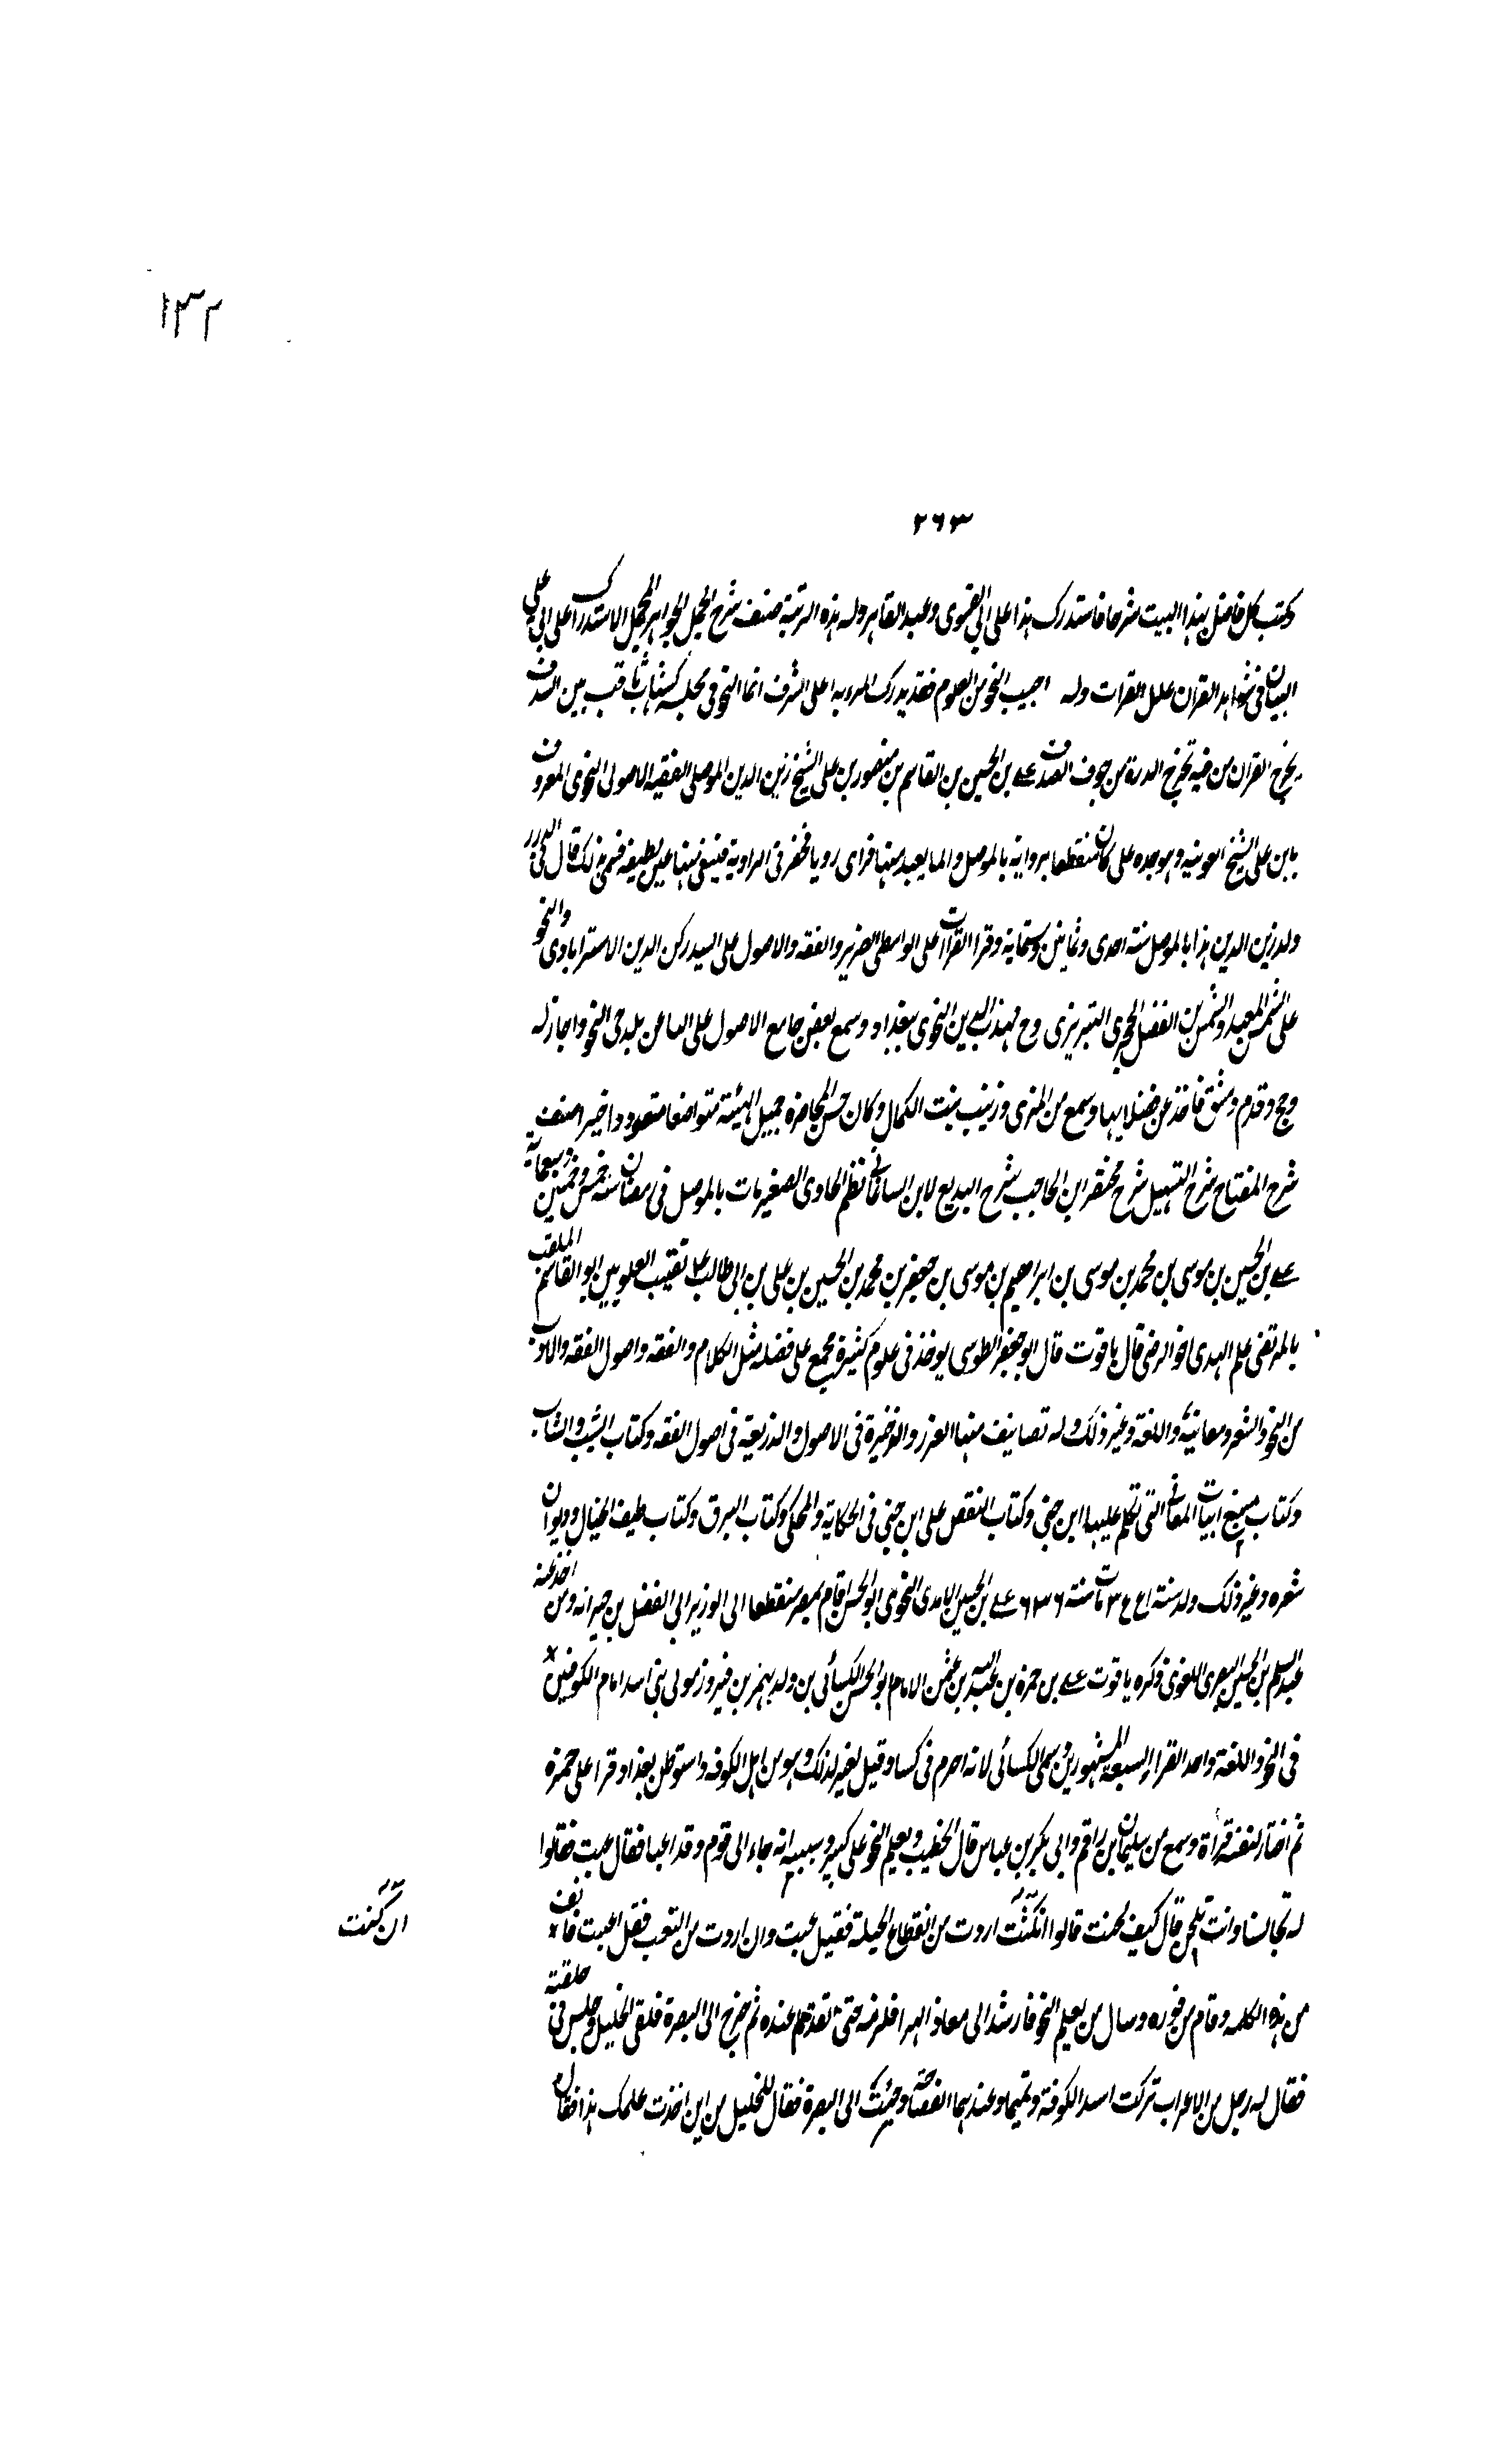 ١٣٢
٢٦٣
وكتب كل فاضل بهذا البيت شرحا فاستدرك هذا على ابي الفسوى وعبد القاهر وله هذه الرتبة صنف شرح الجمل الجواهر المجمل الاستدراك على ابي علي
البيان في شواهد القران علل القرات وله احبب النحو من العلوم فقد يدرك المرء به اعلى الشرف انما النحوى فى مجلسه كشهاب ثاقب بين السدف
يخرج القران من فيه تخرج الدرة من جوف الصدف علي بن الحسين بن القاسم بن منصور بن على الشيخ زين الدين الموصلى الفقيه الاصولى النحوى المعروف
بابن على الشيخ العوينه وهو جده على كان منقطعا بزواية بالموصل والما بعيد منها فراى رويا فحفر فى الزاوية فنبغ منها عين لطيفه فسمى بذلك قال فى الدرر
ولد زين الدين هذا بالموصل سنة احدى وثمانين وستماية وقرا القراات على الواسطى الضرير والفقه والاصول على السيد ركن الدين الاستراباذى والنحو
على الشمس المعيد والشمس بن الفضل الحجرى التبريزى وح مهذب الدين النحوى ببغداد وسمع بعض جامع الاصول على الساعن بلدجى النحو واجازله
وحج وقدم دمشق فاخذ عن فضلايها وسمع من المزى وزينب بنت الكمال وكان حسن المحاضرة جميل الهيئة متواضعا متعوددا خيرا صنف
شرح المفتاح شرح التسهيل شرح مختصر ابن الحاجب شرح البديع لابن الساعاتى نظم الحاوى الصغير مات بالموصل فى رمضان سنة خمس وخمسين وسبعماية
علي بن الحسين بن موسى بن محمد بن موسى بن ابراهيم بن موسى بن جعفر بن محمد بن الحسين بن على بن ابى طالب نقيب العلويين ابو القاسم الملقب
بالمرتضى علم الهدى اخو الرضى قال ياقوت قال ابو جعفر الطوسى يوخذ فى علوم كثيرة مجمع على فضله مثل الكلام والفقه واصول الفقه والادب
من النحو والشعر ومعانيه واللغة وغير ذلك وله تصانيف منها الغرر والذخيرة فى الاصول والذريعة فى اصول الفقه وكتاب الشيب والشباب
وكتاب تتبع ابيات المعانى التى تكلم عليها ابن جنى وكتاب النقض على ابن جنى فى الحكاية والمحكى وكتاب البرق وكتاب طيف الخيال وديوان
شعره وغير ذلك ولد سنة ٣ مات سنة ٦٣٦ علي بن الحسين الامدى النحوى ابو الحسن اقام بمصر منقطعا الى الوزير ابى الفضل بن حيرانه ومن اخذ عنه
عبد السلام بن الحسين البصرى اللغوى ذكره ياقوت علي بن حمزة بن عبد الله بن عثمن الامام ابو الحسن الكسائى من ولد بهمز بن فيروز مولى بنى اسد امام الكوفيين
فى النحو واللغة واحد القراء السبعة المشهورين وسمى الكسائى لانه احرم فى كسا وقيل لغير ذلك وهو من اهل الكوفه واستوطن بغداد وقرا على حمزة
ثم اختار لنفسه قراة وسمع من سليمان بن راقم وابى بكر بن عباس قال الخطيب وتعلم النحو على كبر وسببه انه جاء الى قوم وقد اعبا فقال عبت فقالوا
له تجالسنا وانت تلحن قال كيف لحنت قالوا ان كنت اردت من انقطاع الحيلة فقيل عبت وان اردت من التعب فقل اعبت فانف
من هذه الكلمه وقام من فوره وسال من يعلم النحو فارشد الى معاذ الهرا فلزمه حتى نفد ما عنده ثم خرج الى البصرة فلقى الخليل وجلس فى حلقته
فقال له رجل من الاعراب تركت اسد الكوفة وتميما وعندهما الفصاحة وجئت الى البصرة فقال للخليل من اين اخذت علمك هذا فقال
ان كنت